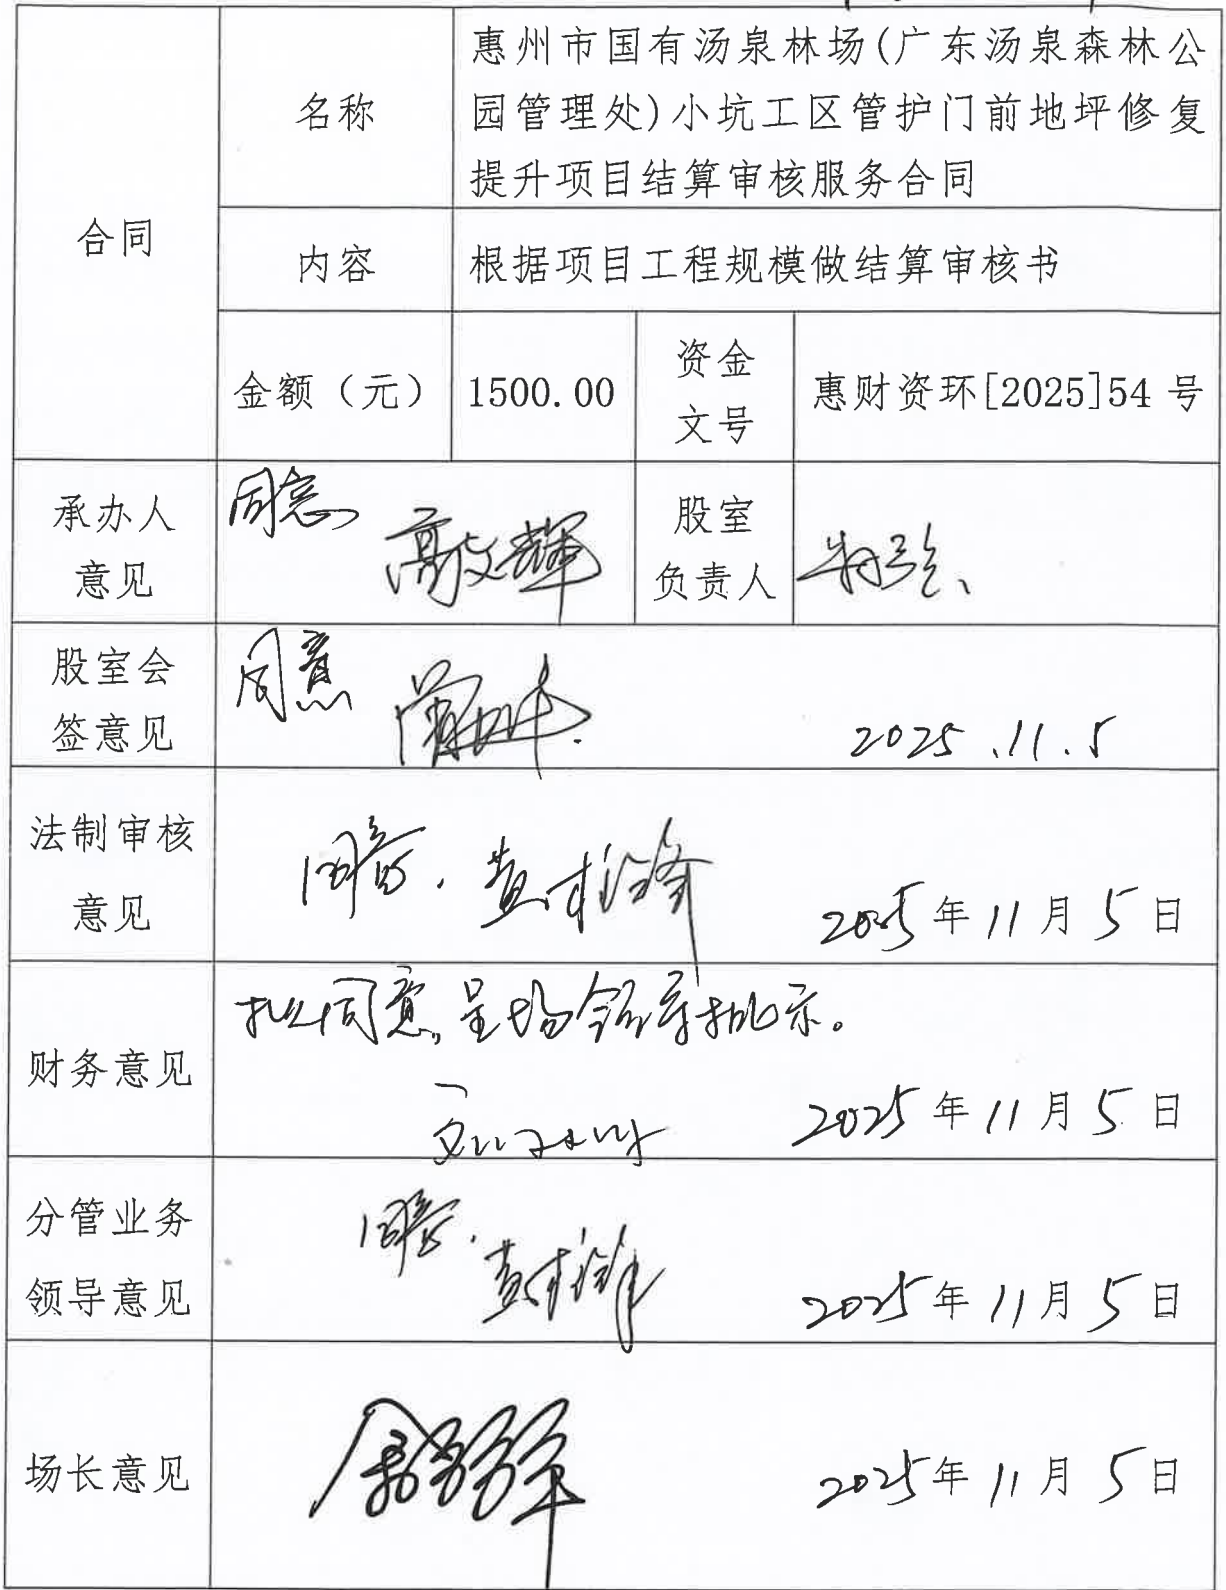 合同
名称
惠州市国有汤泉林场(广东汤泉森林公
园管理处)小坑工区管护门前地坪修复
提升项目结算审核服务合同
内容
根据项目工程规模做结算审核书
金额（元）
1500.00
资金
文号
惠财资环[2025]54 号
承办人
意见
同意
高文辉
股室
负责人
股室会
签意见
同意
2025.11.5
法制审核
意见
同意.
2025年11月5日
财务意见
拟同意,呈场领导批示。
2025年11月5日
分管业务
领导意见
同意.
2025年11月5日
场长意见
2025年11月5日